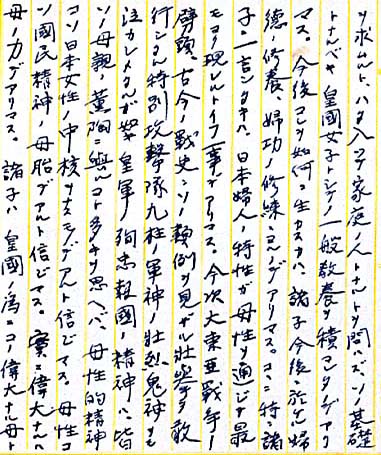 ヲ求ムルト、ハタ入ツテ家庭ノ人トナルトヲ問ハズソノ基礎
トナルベキ皇國女子トシテノ一般教養ヲ積マレタノデアリ
マス。今後コレヲ如何ニ生カスカハ、諸子今後ニ於ケル婦
徳ノ修養、婦功ノ修練ニヨルノデアリマス。コヽニ特ニ諸
子ニ一言シタキハ、日本婦人ノ特性ガ母性ヲ通ジテ最
モヨク現レルトイフ事デアリマス。今次大東亜戦争ノ
劈頭、古今ノ戦史ニソノ類例ヲ見ザル壮擧ヲ敢
行シタル特別攻撃隊九柱ノ軍神ノ壮烈鬼神ヲモ
泣カシメタルガ如キ皇軍ノ殉忠報國ノ精神ハ、皆
ソノ母親ノ薫陶ニ與ルコト多キヲ思ヘバ、母性的精神
コソ日本女性ノ中核ヲナスモノデアルト信ジマス。母性コ
ソ國民精神ノ母胎デアルト信ジマス。實ニ偉大ナルハ
母ノ力デアリマス。諸子ハ皇國ノ為ニコノ偉大ナル母ト